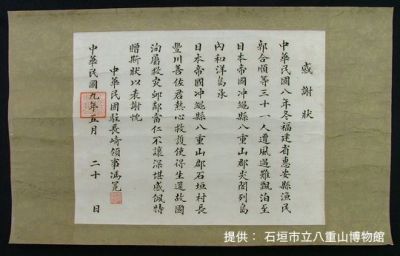 感謝狀
中華民國八年冬福建省惠安縣漁民
郭合順等三十一人遭風遇難飄泊至
日本帝國沖繩縣八重山郡尖閣列島
內和洋島承
日本帝國沖繩縣八重山郡石垣村長
豐川善佐君熱心救護使得生還故國
洵屬救災卹鄰當仁不讓深堪感佩特
贈斯狀以表謝忱
中華民國駐長崎領事馮冕
中華民國九年五月 二十 日
提供： 石垣市立八重山博物館